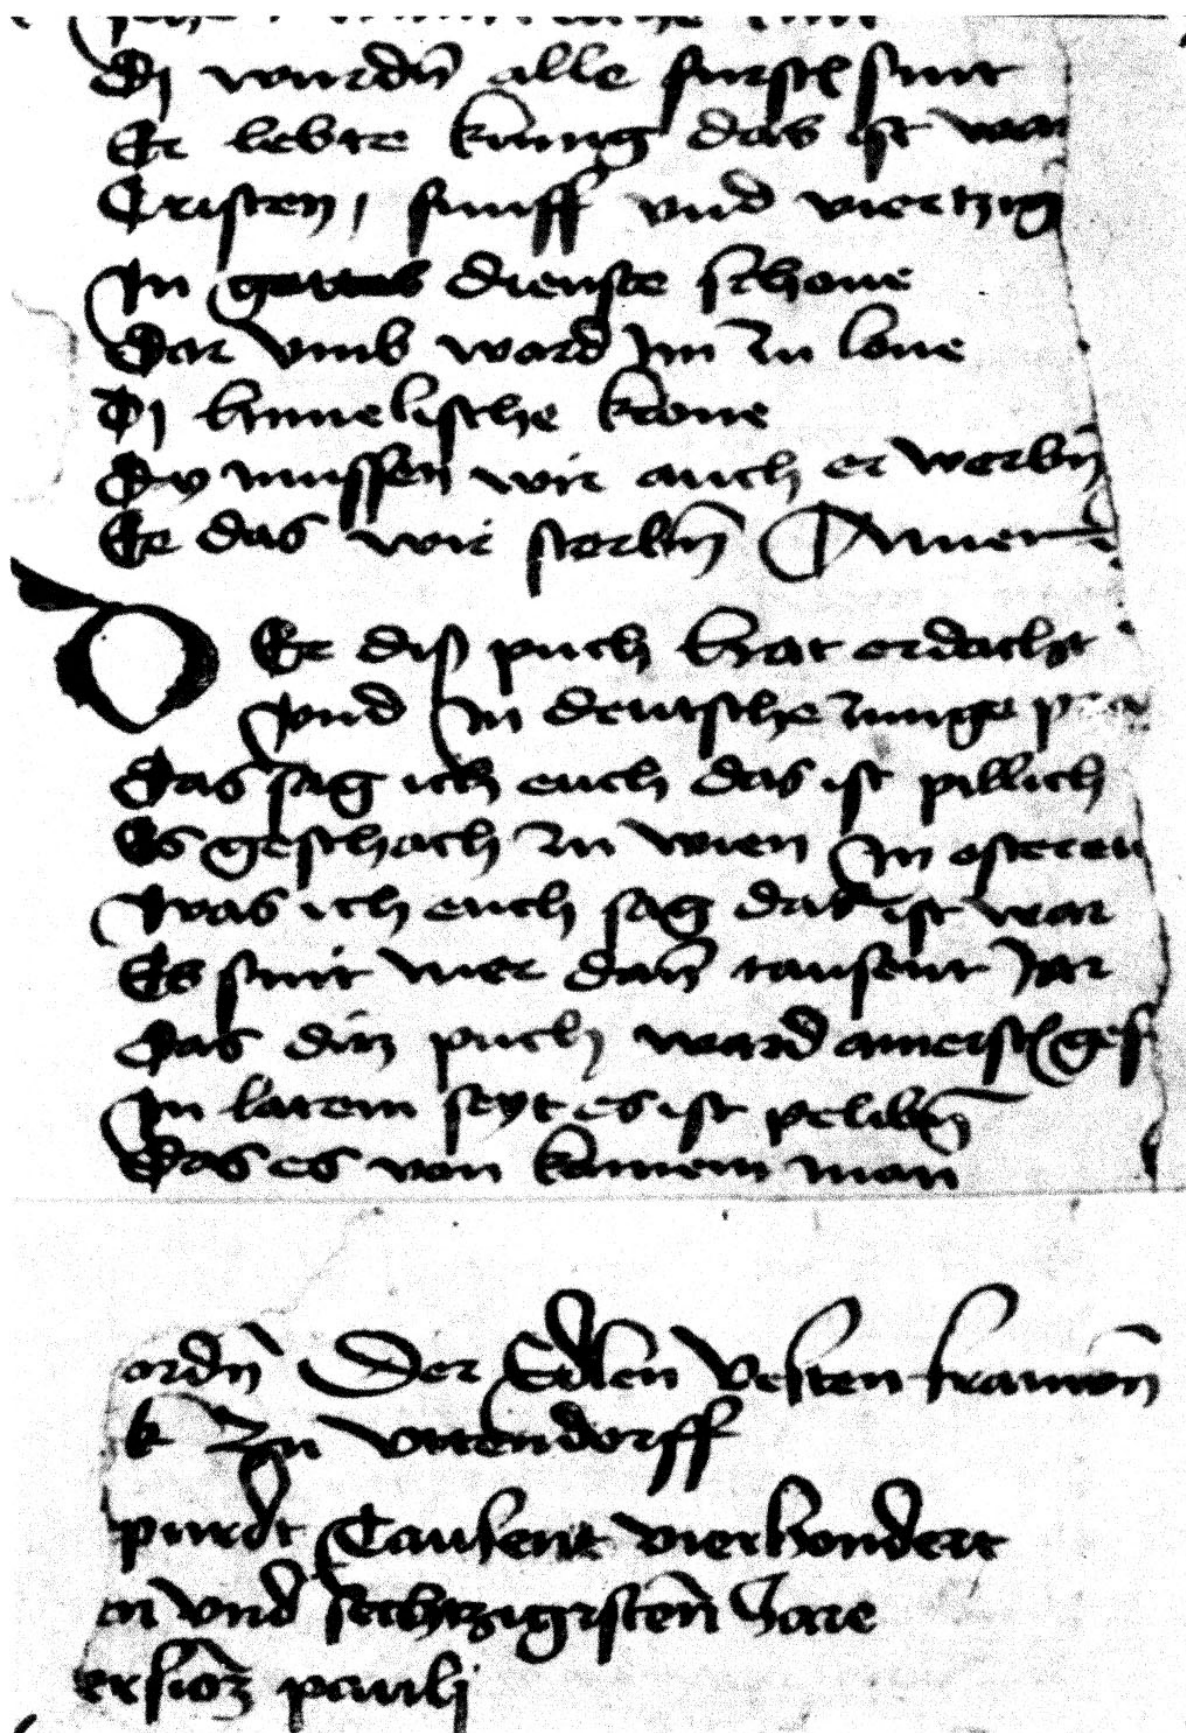 Dj wurdn̄ alle fursten sint
Er lebte kunig das ist war
Cristen, funff vnd viertzig
In gottes dienste schone
Dar vmb ward Im zu lone
Dj himelische krone
Dy mussen wir auch er werbn̄
Ee das wir sterbn̄ Amen
DEr diß puch hat erdacht
Vnd In deutsche zunge
Das sag ich euch das ist pillich
Es geschach zu wien In osterei
Was ich euch sag das ist war
Es sint mer dan̄ tausent Jar
Das ditz puch ward gef
In latein seyt es ist pelibn̄
Das es von kainem man̄
ordn̄ Der Edlen̄ Vesten frawen̄
k Zu vttendorff
purdt Tausent vierhundert
n vnd sechtzigisten̄ Jare
ersioz paulj